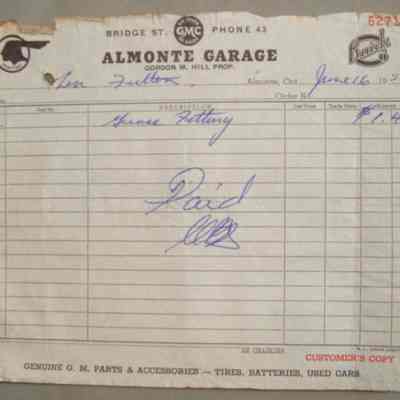 BRIDGE ST. GMC PHONE 43
5271
ALMONTE GARAGE
GORDON M. HILL PROP.
Len Fulton Almonte, Ont. June 16 19
Order No.
DESCRIPTION
Grease Fitting $1.4
Paid
AK CHARGES
CUSTOMER'S COPY
GENUINE G. M. PARTS & ACCESSORIES — TIRES, BATTERIES, USED CARS